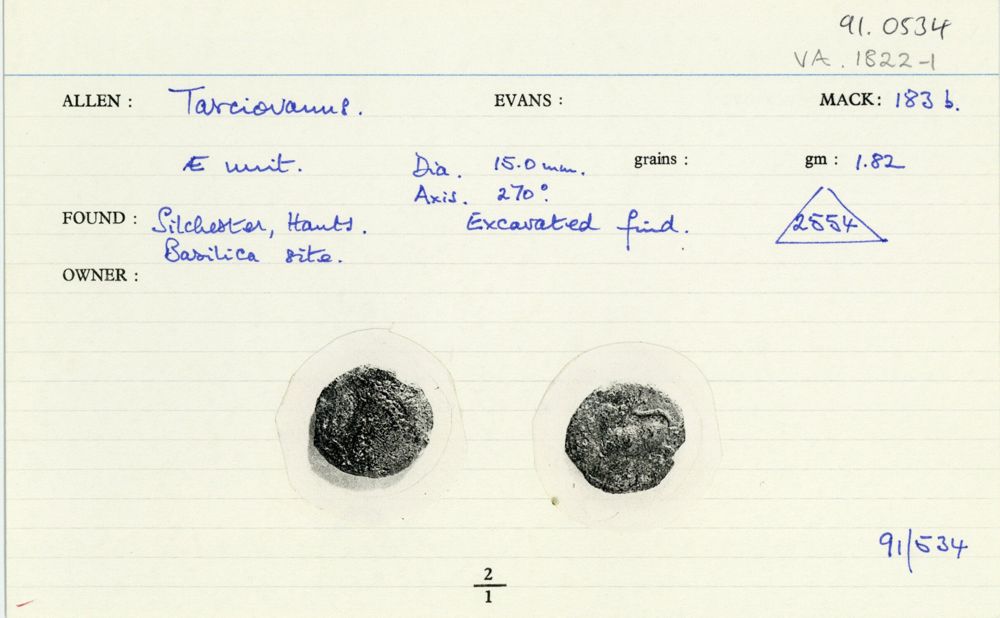 91. 0534
VA. 1822-1
ALLEN : Tasciovanus. EVANS : MACK: 183 b.
Æ unit. Dia. 15.0 mm. grains : gm : 1.82
Axis. 270°.
FOUND : Silchester, Hants. Excavated find. 2554
Basilica site.
OWNER :
91/534
2
1